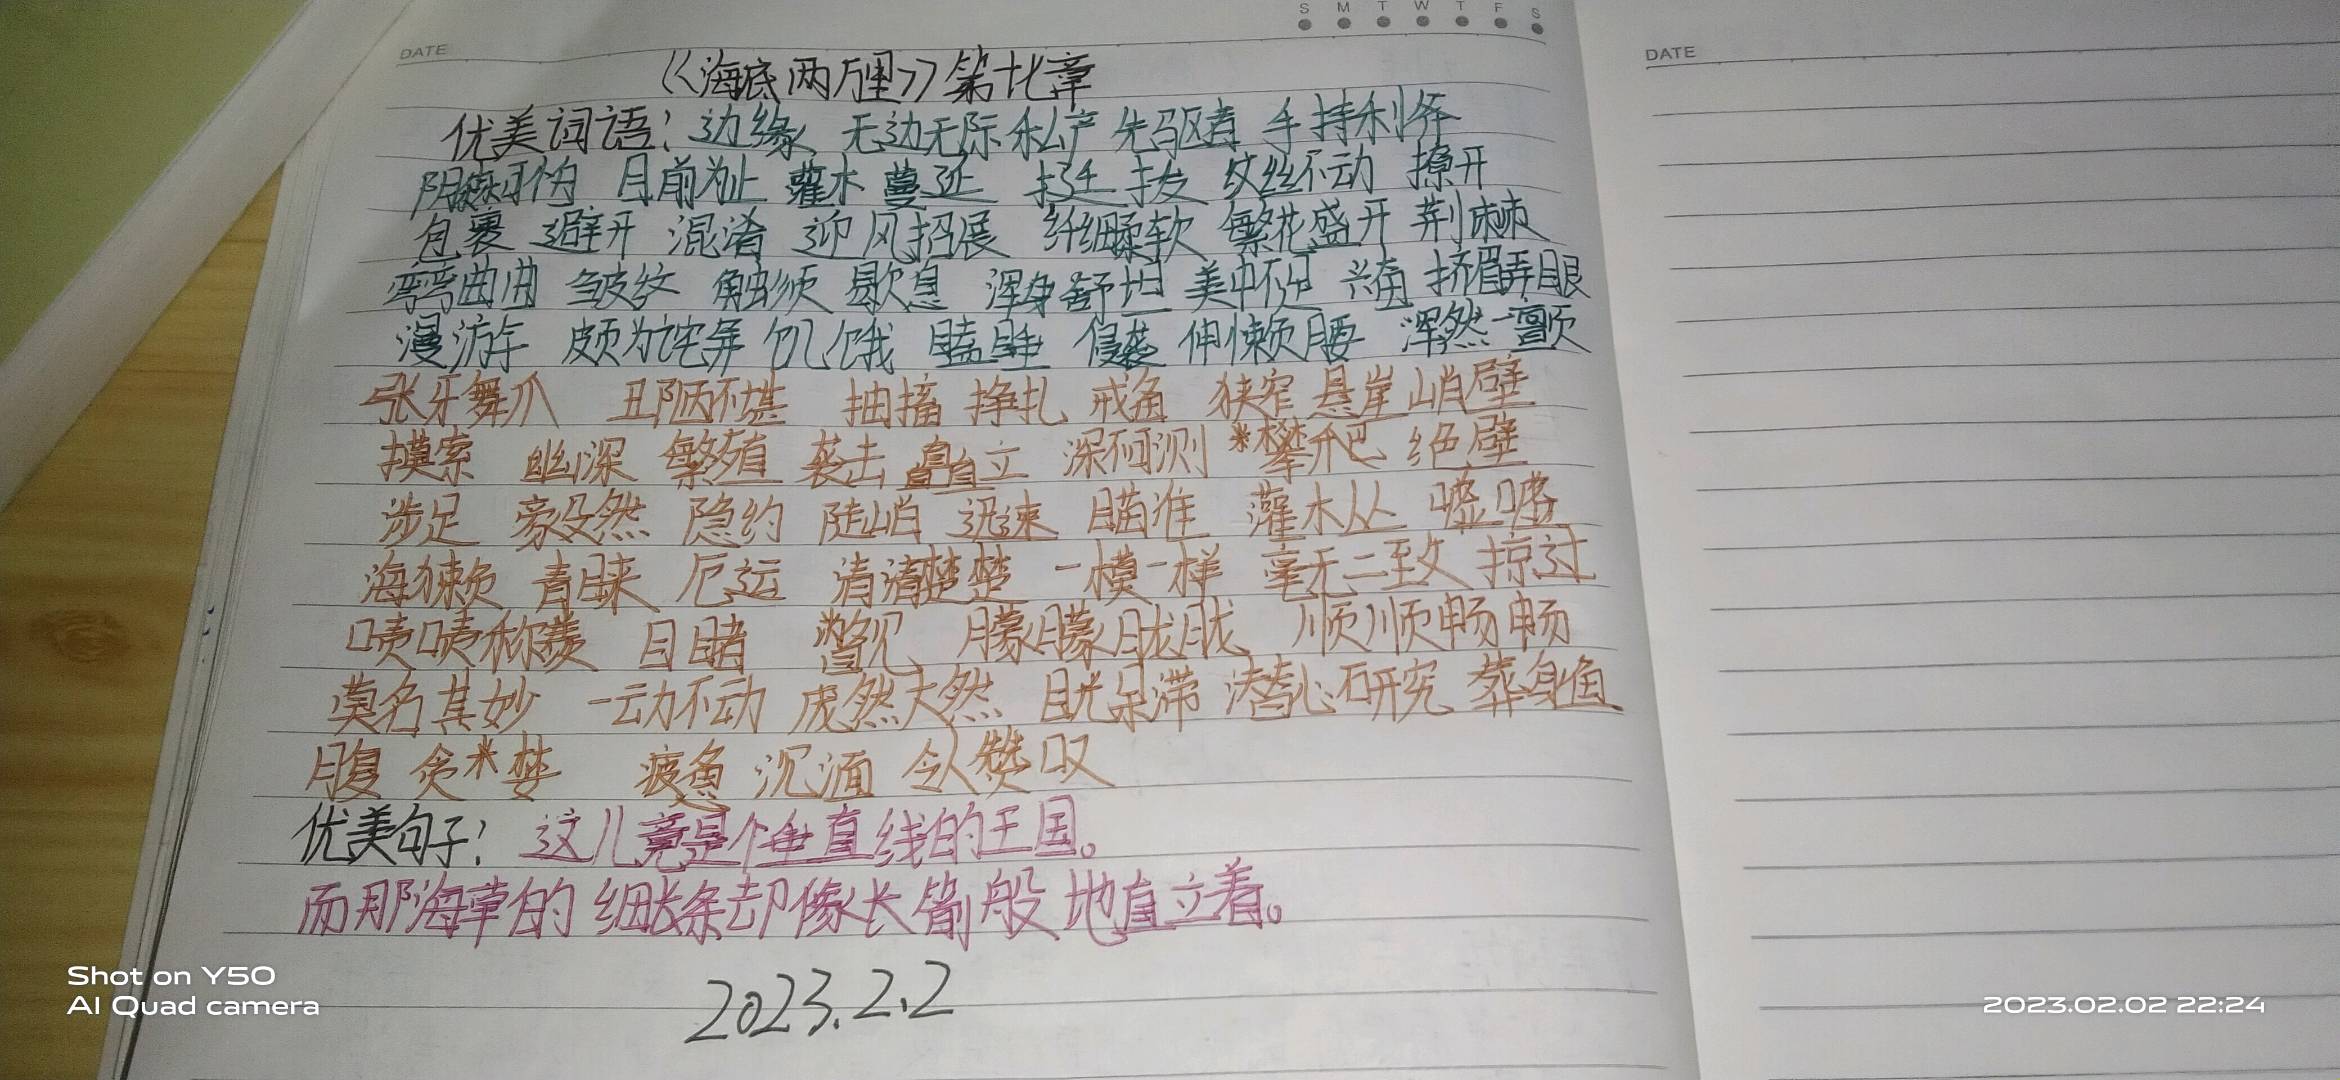 S M T W T F S
DATE
DATE
《海底两万里》第十七章
优美词语：边缘 无边无际 私产 先驱者 手持利斧
阴森可怕 目前为止 灌木 蔓延 挺拔 纹丝不动 撩开
包裹 避开 混淆 迎风招展 纤细柔软 繁花盛开 荆棘
弯弯曲曲 皱纹 触须 歇息 浑身舒坦 美中不足 兴奋 挤眉弄眼
漫游 颇为诧异 饥饿 瞌睡 侵袭 伸懒腰 浑然一颤
张牙舞爪 丑陋不堪 抽搐 挣扎 戒备 狭窄 悬崖峭壁
摸索 幽深 繁殖 袭击 矗立 深不可测 攀爬 绝壁
涉足 豪段然 隐约 陡峭 迅速 瞄准 灌木丛 嘘唏
海獭 青睐 厄运 清清楚楚 一模一样 毫无二致 掠过
啧啧称羡 目睹 瞥见 朦朦胧胧 顺顺畅畅
莫名其妙 一动不动 庞然大然 目光呆滞 潜心研究 葬身鱼
腹 贪婪 疲惫 沉湎 令人赞叹
优美句子：这儿竟是个垂直线的王国。
而那海草的细长条却像长箭般地直立着。
2023.2.2
Shot on Y50
AI Quad camera
2023.02.02 22:24